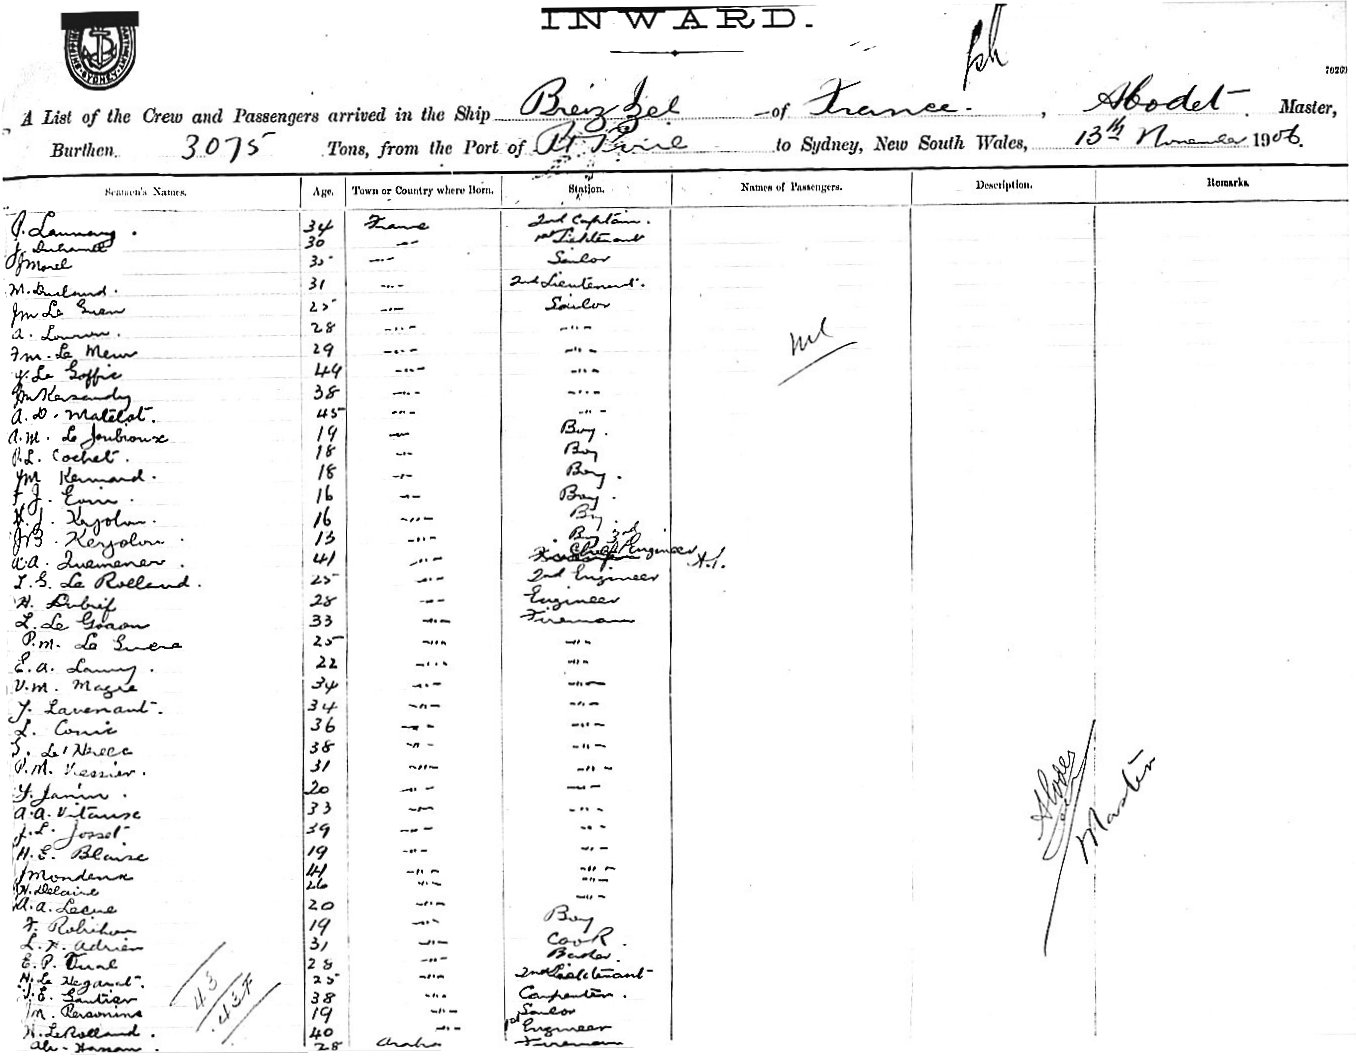 INWARD.
70269
A List of the Crew and Passengers arrived in the Ship Breiz Izel of France. , Abodet Master,
Burthen 3075 Tons, from the Port of Pt Pirie to Sydney, New South Wales, 13th November 1906.
Seamen's Names. Age. Town or Country where Born. Station. Names of Passengers. Description. Remarks.
P. Launay. 34 France 2nd Captain.
J. Duhamel 30 -"- 1st Lieutenant
J Morel 35 -"- Sailor
M. Durand. 31 -"- 2nd Lieutenant.
Jm Le Guen 25 -"- Sailor
A. 28 -"- -"-
Fm. Le Meur 29 -"- -"-
Y. Le Goffic 49 -"- -"-
38 -"- -"-
A. D. Matelot. 45 -"- -"-
A. M. Le Joubioux 19 -"- Boy.
P. L. Cochet. 18 -"- Boy
18 -"- Boy.
F. J. Evin. 16 -"- Boy.
H. J. Kerjolon. 16 -"- Boy
J B Kerjolon. 13 -"- Boy
A. A. Quemener. 41 -"- 3rd Engineer H.J.
L. G. Le Rolland. 25 -"- 2nd Engineer
H. Dubrif 28 -"- Engineer
L. Le Goaon 33 -"- Fireman
P. M. Le 25 -"- -"-
E. A. 22 -"- -"-
V. M. Magre 34 -"- -"-
Y. Lavenant. 34 -"- -"-
L. Connic 36 -"- -"-
38 -"- -"-
P. M. Vessier. 31 -"- -"-
Y. Janin. 20 -"- -"-
A. A. Vitause 33 -"- -"-
J. L. Josset 39 -"- -"-
H. E. Blaise 19 -"- -"-
J Mondeux 41 -"- -"-
H. Delaire 26 -"- -"-
A. A. Lecue 20 -"- -"-
F. Robihon 19 -"- Boy
L. F. Adrien 31 -"- Cook.
E. P. Dual 28 -"- Baker.
H. Le Hegarat. 25 -"- 2nd Lieutenant
J. E. Gautier 38 -"- Carpenter.
J M. Personine 19 -"- Sailor
H. Le Rolland. 40 -"- 1st Engineer
Ali Hassan. 28 Arabia Fireman
Nil
43
Abodet
Master